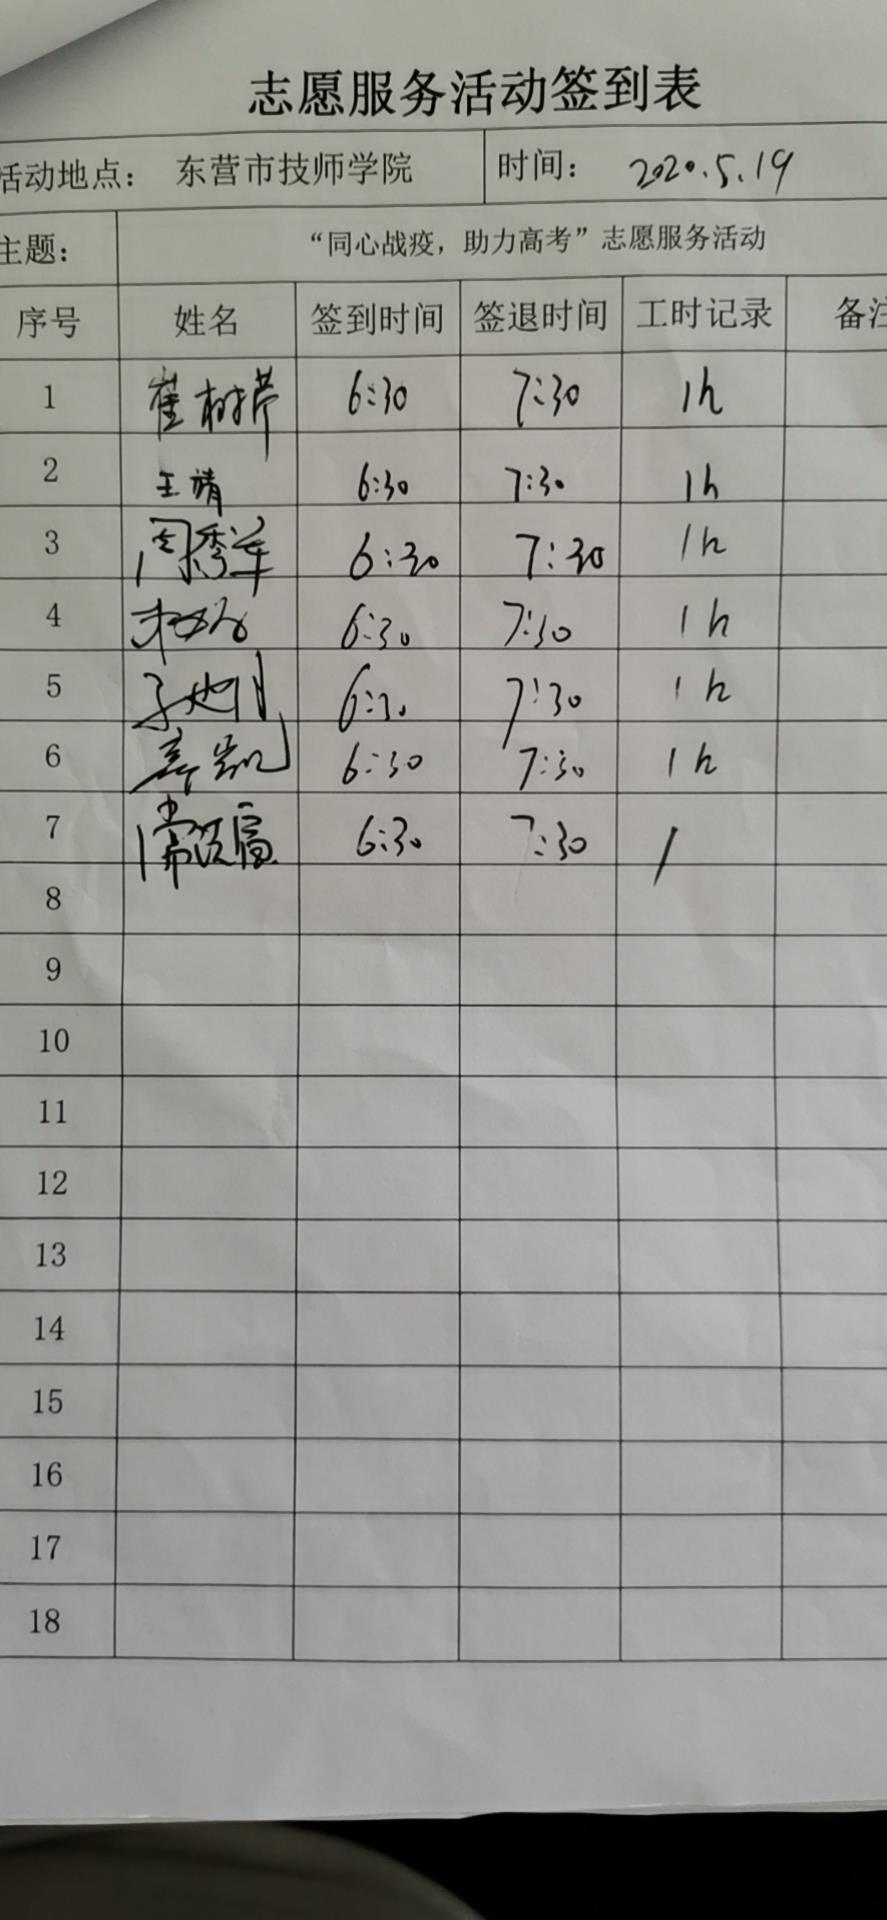 志愿服务活动签到表
活动地点： 东营市技师学院 时间： 2020.5.19
主题： “同心战疫，助力高考”志愿服务活动
序号 姓名 签到时间 签退时间 工时记录 备注
1 崔树芹 6:30 7:30 1h
2 王靖 6:30 7:30 1h
3 周秀军 6:30 7:30 1h
4 6:30 7:30 1h
5 6:30 7:30 1h
6 6:30 7:30 1h
7 6:30 7:30 1
8
9
10
11
12
13
14
15
16
17
18